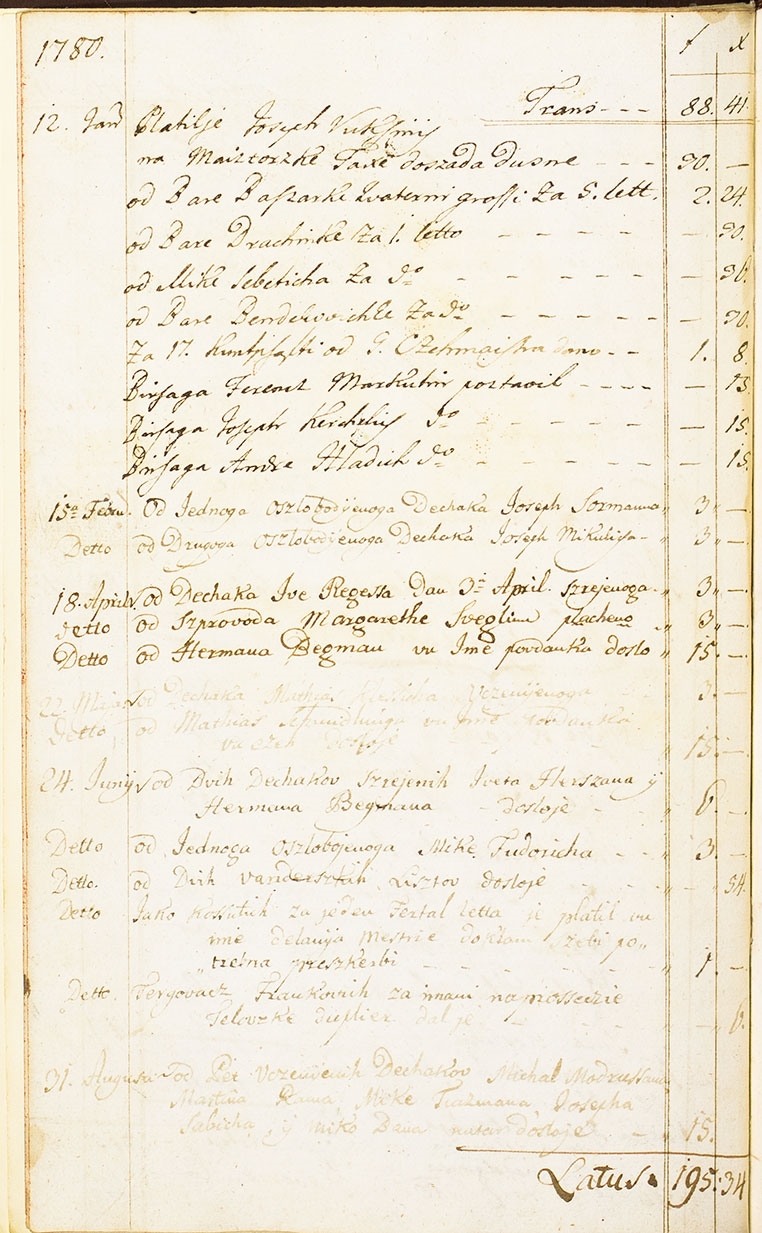 1780. f x
Trans - - - 88. 41.
12. Jan Platilje Joseph
na Maisztorzke Taxe doszada Dusne - - - 30. —
od Bare Paszarke Quaterni grossi Za 5. lett. 2. 24.
od Bare Drachinke Za 1. letto - - - - - — 30.
od Mike Sebeticha Za do - - - - - - — 30.
od Bare Za do - - - - - — 30.
Za 17. od G. Czehmaistra dano - - 1. 8.
Birsaga Ferencz Markulin posztavil - - - - — 15.
Birsaga Joseph do - - - - - - — 15.
Birsaga Andre Hladich do - - - - - - — 15.
15a Febru. Od Jednoga oszlobodjenoga Dechaka Joseph Sormanna „ 3 „ —
Detto od Drugoga oszlobodjenoga Dechaka Joseph - „ 3 „ —
18. Aprilis. od Dechaka Ive Regessa Dan 3a April. szrejenoga - „ 3 „ —
detto od Szprovoda Margarethe placheno - „ 3 „ —
Detto od Hermana Begman vu Ime povdanka doslo „ 15. —
22. Maja od Dechaka Mathias Vczenijenoga 3. —
Detto od Mathias vu Ime povdanka
vu czeh dosloje „ 15. —
24. Junij od Dvih Dechakov Szrejenih Iveta Herszana ij
Hermana Begmana - dosloje - - „ 6. —
Detto od Jednoga oszlobojenoga Mike Tudoricha - - „ 3. —
Detto. od Dvih Lisztov dosloje - - - - — „ 54.
Detto Jako za jeden Fertal letta je platil vu
ime delanja Mestrie doklam szebi po„
„trebna preszkerbi - - - - - - „ 1. —
Detto. Tergovacz za
Telovzke duplier dal je - - - - — 6.
31. Augusti od Pet Vczenijenih Dechakov Michal
Martina Mike Josepha
ij dosloje - „ 15.
Latus. 195. 34